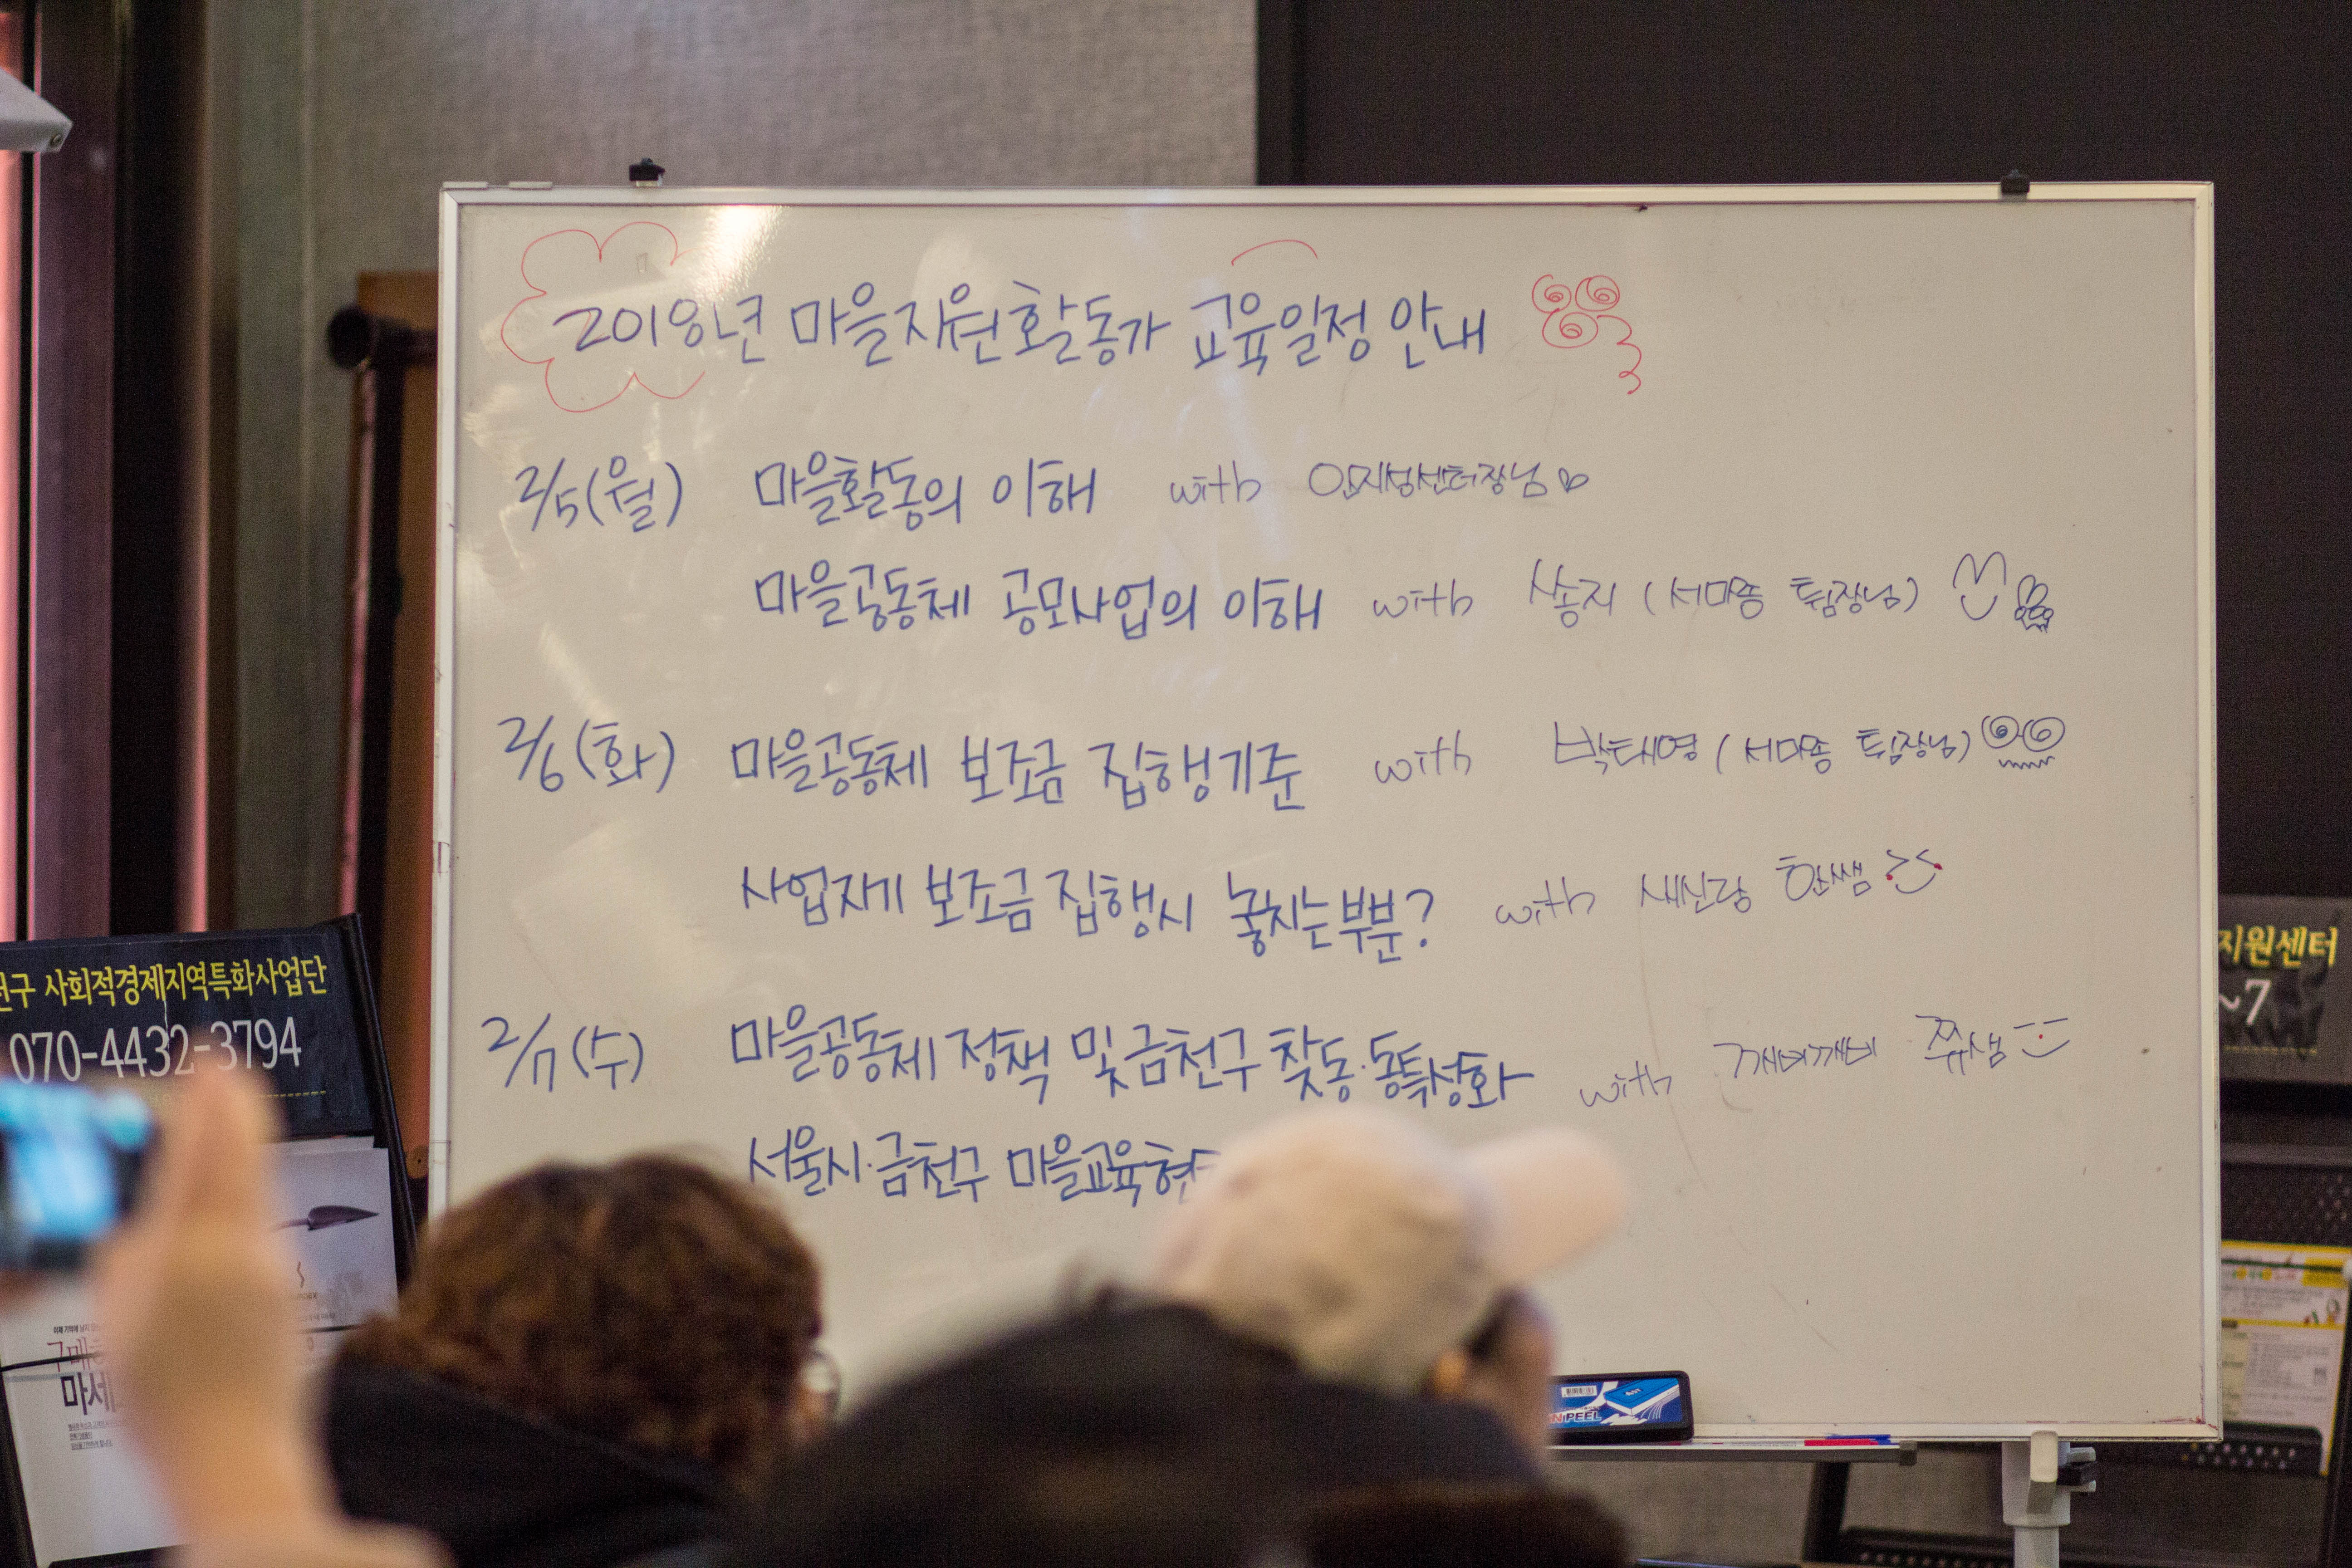 2018년 마을지원활동가 교육일정 안내
2/5(월) 마을활동의 이해 with 센터장님♡
마을공동체 공모사업의 이해 with 송지 (서마종 팀장님)
2/6(화) 마을공동체 보조금 집행기준 with 박태영 (서마종 팀장님)
사업자기 보조금 집행시 놓치는부분? with 새신랑 한쌤
2/7(수) 마을공동체 정책 및 금천구 찾동·동특성화 with 깨비깨비 쮸쌤
서울시·금천구 마을교육
천구 사회적경제지역특화사업단
070-4432-3794
지원센터
~7
구매
마세
PEEL